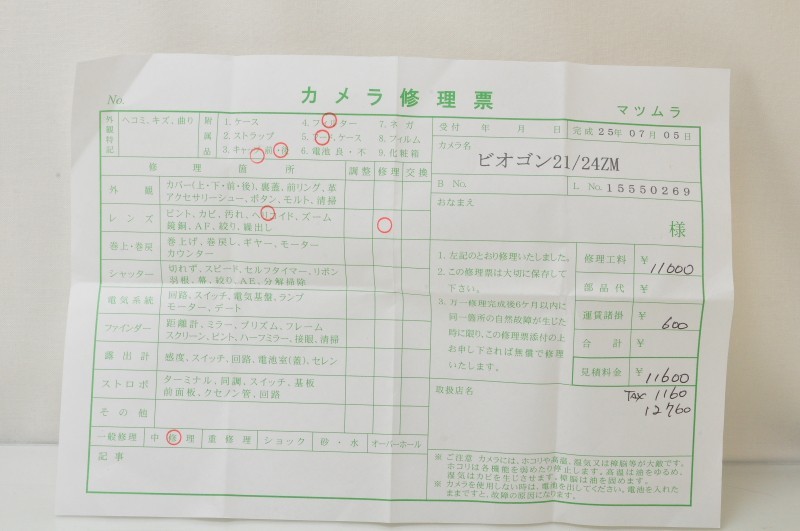 No.
カメラ修理票
マツムラ
外観特記
ヘコミ、キズ、曲り
附属品
1. ケース 4. フィルター 7. ネガ
2. ストラップ 5. フード、ケース 8. フィルム
3. キャップ前・後 6. 電池良・不 9. 化粧箱
受付 年 月 日
完成 25年 07月 05日
カメラ名
ビオゴン21/24ZM
B No.
L No. 15550269
おなまえ
様
修理箇所 調整 修理 交換
外観 カバー(上・下・前・後)、裏蓋、前リング、革
アクセサリーシュー、ボタン、モルト、清掃
レンズ ピント、カビ、汚れ、ヘリコイド、ズーム
鏡胴、AF、絞り、繰出し
巻上・巻戻 巻上げ、巻戻し、ギヤー、モーター
カウンター
シャッター 切れず、スピード、セルフタイマー、リボン
羽根、幕、絞り、AE、分解掃除
電気系統 回路、スイッチ、電気基盤、ランプ
モーター、デート
ファインダー 距離計、ミラー、プリズム、フレーム
スクリーン、ピント、ハーフミラー、接眼、清掃
露出計 感度、スイッチ、回路、電池室(蓋)、セレン
ストロボ ターミナル、同調、スイッチ、基板
前面板、クセノン管、回路
その他
一般修理 中修理 重修理 ショック 砂・水 オーバーホール
記事
1. 左記のとおり修理いたしました。
2. この修理票は大切に保存して
下さい。
3. 万一修理完成後6ケ月以内に
同一箇所の自然故障が生じた
時に限り、この修理票添付の上
お申し下されば無償で修理
いたします。
修理工料 ¥ 11000
部品代 ¥
運賃諸掛 ¥ 600
合計 ¥
見積料金 ¥ 11600
TAX 1160
12760
取扱店名
※ ご注意 カメラには、ホコリや高温、湿気又は樟脳等が大敵です。
ホコリは各機能を弱めたり停止します。高温は油をゆるめ、
湿気はカビを生じさせます。樟脳は油を固めます。
※ カメラを使用しない時は、電池を出してください。電池を入れた
ままですと、故障の原因になります。